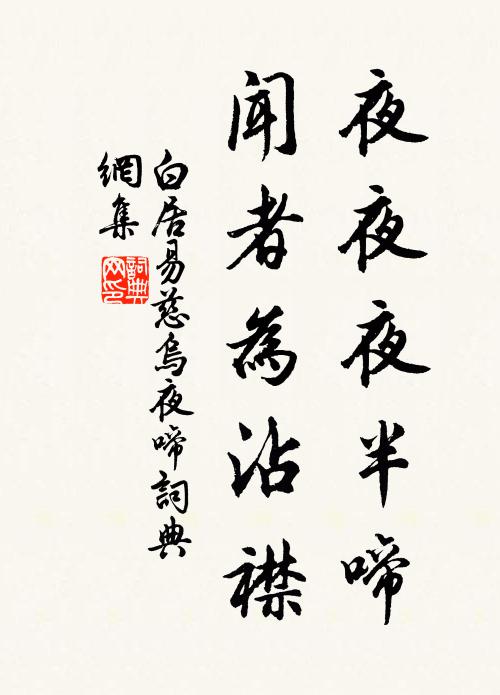 夜夜夜半啼
聞者為沾襟
白居易慈烏夜啼詞典
網集
詞典
网印